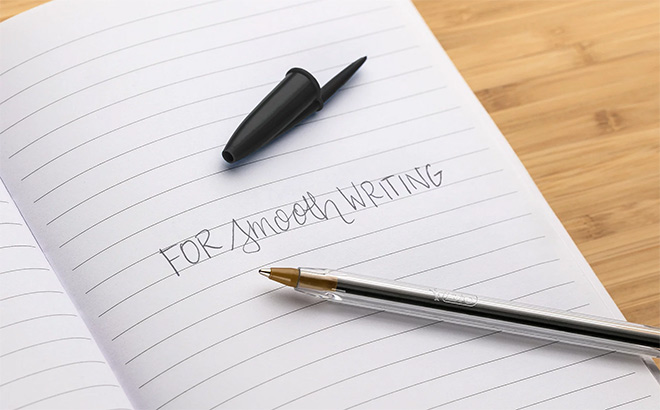 FOR smooth WRITING